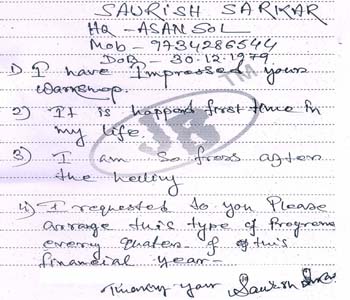 SAURISH SARKAR
HQ - ASANSOL
Mob - 9734286544
DoB - 30.12.1979
1) I have Impressed yours
Warkshop.
2) It is happend first time in
my life.
3) I am so fress after
the heeling
4) I requested to you Please
arrange this type of Programe
everry Quater of this
financial year-
Thanking your Saurish Sarkar
JR TM